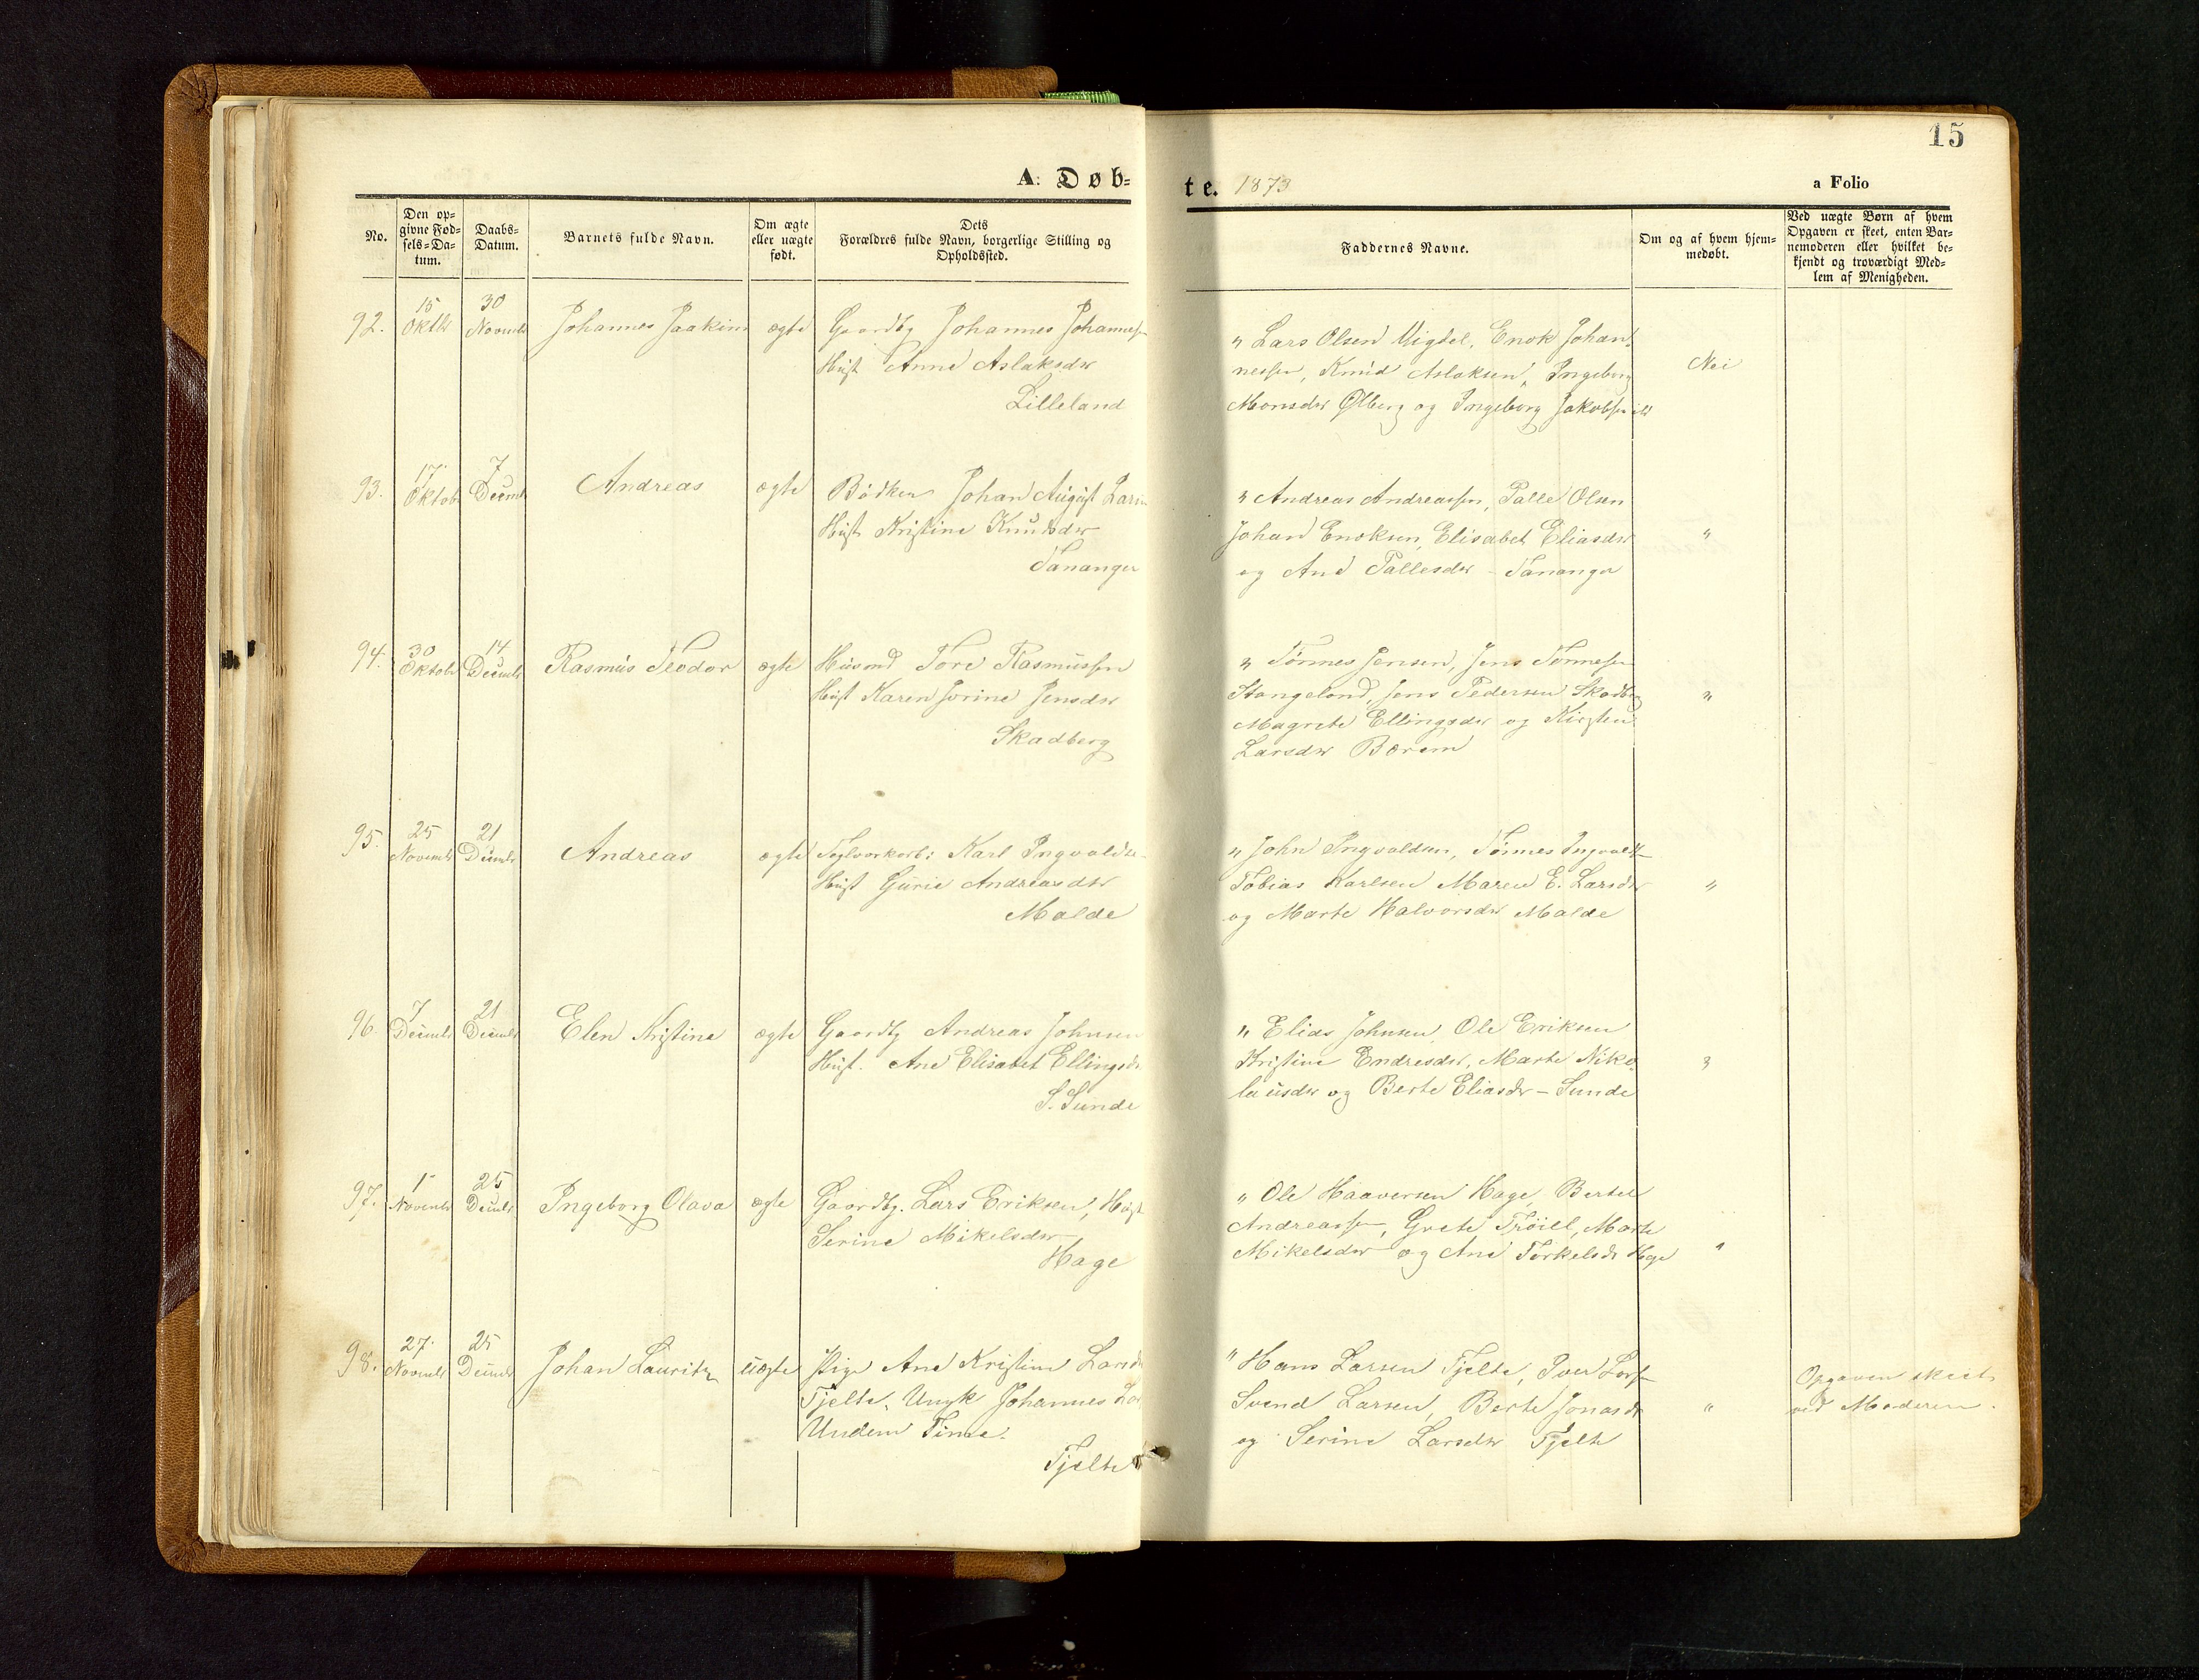 15
A: Døb=
te. 1873
a Folio
No.
Den op=
givne Fød=
sels=Da=
tum.
Daabs=
Datum.
Barnets fulde Navn.
Om ægte
eller uægte
født.
Dets
Forældres fulde Navn, borgerlige Stilling og
Opholdssted.
Faddernes Navne.
Om og af hvem hjem=
medøbt.
Ved uægte Børn af hvem
Opgaven er skeet, enten Bar=
nemoderen eller hvilket be=
kjendt og troværdigt Med=
lem af Menigheden.
92. 15 Oktbr 30 Novembr Johannes Joakim ægte Gaardbg Johannes Johannessen
Hust Anne Aslaksdtr
Lilleland
" Lars Olsen Migdel, Enok Johan=
nessen, Knud Aslaksen, Ingeborg
Monsdtr Ølberg og Ingeborg Jakobsendtr
Nei
93. 17 Oktobr 7 Decmbr Andreas ægte Bødker Johan August Larsen
Hust Kristine Knudsdtr
Tananger
" Andreas Andreassen, Palle Olsen
Johan Enoksen, Elisabet Eliasdtr
og Ane Pallesdtr - Tananger
"
94. 30 Oktobr 14 Decembr Rasmus Teodor ægte Husmd Tore Rasmussen
Hust Karen Jorine Jensdtr
Skadberg
" Tønnes Jensen, Jens Tønnesen
Stangeland, Jens Pedersen Skadberg
Magrete Ellingsdtr og Kirsten
Larsdtr Børem
"
95. 25 Novembr 21 Decembr Andreas ægte Teglværkarb: Karl Ingvaldsen
Hust Gurie Andreasdtr
Malde
" John Ingvaldsen, Tønnes Ingvaldsen
Tobias Karlsen Maren E. Larsdtr
og Marte Halvorsdtr Malde
"
96. 7 Decembr 21 Decembr Elen Kristine ægte Gaardbg Andreas Johnsen
Hust. Ane Elisabet Ellingsdtr
S. Sunde
" Elias Johnsen, Ole Eriksen
Kristine Endresdtr, Marte Niko=
lausdtr og Berte Eliasdtr - Sunde
"
97. 1 Novembr 25 Decmbr Ingeborg Olava ægte Gaardbg. Lars Eriksen, Hust
Serine Mikelsdtr
Hage
" Ole Haaversen Hage, Bertel
Andreassen, Grete Trøiel, Marte
Mikelsdtr og Ane Torkelsdtr Hage
"
98. 27 Novembr 25 Decembr Johan Lauritz uægte Pige Ane Kristine Larsdtr
Tjelte, Ungk Johannes
Undem Time.
Tjelte
" Hans Larsen Tjelte, Iver Larsen
Svend Larsen, Berte Jonasdtr
og Serine Larsdtr Tjelte
"
Opgaven skeet
ved Moderen.